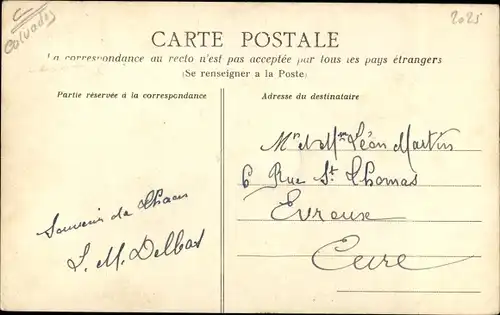 Calvados
2025
CARTE POSTALE
La correspondance au recto n'est pas acceptée par tous les pays étrangers
(Se renseigner a la Poste)
Partie réservée à la correspondance
Adresse du destinataire
Mr et Mme Léon Martin
6 Rue St Thomas
Evreux
Eure
Souvenir de
Delbos